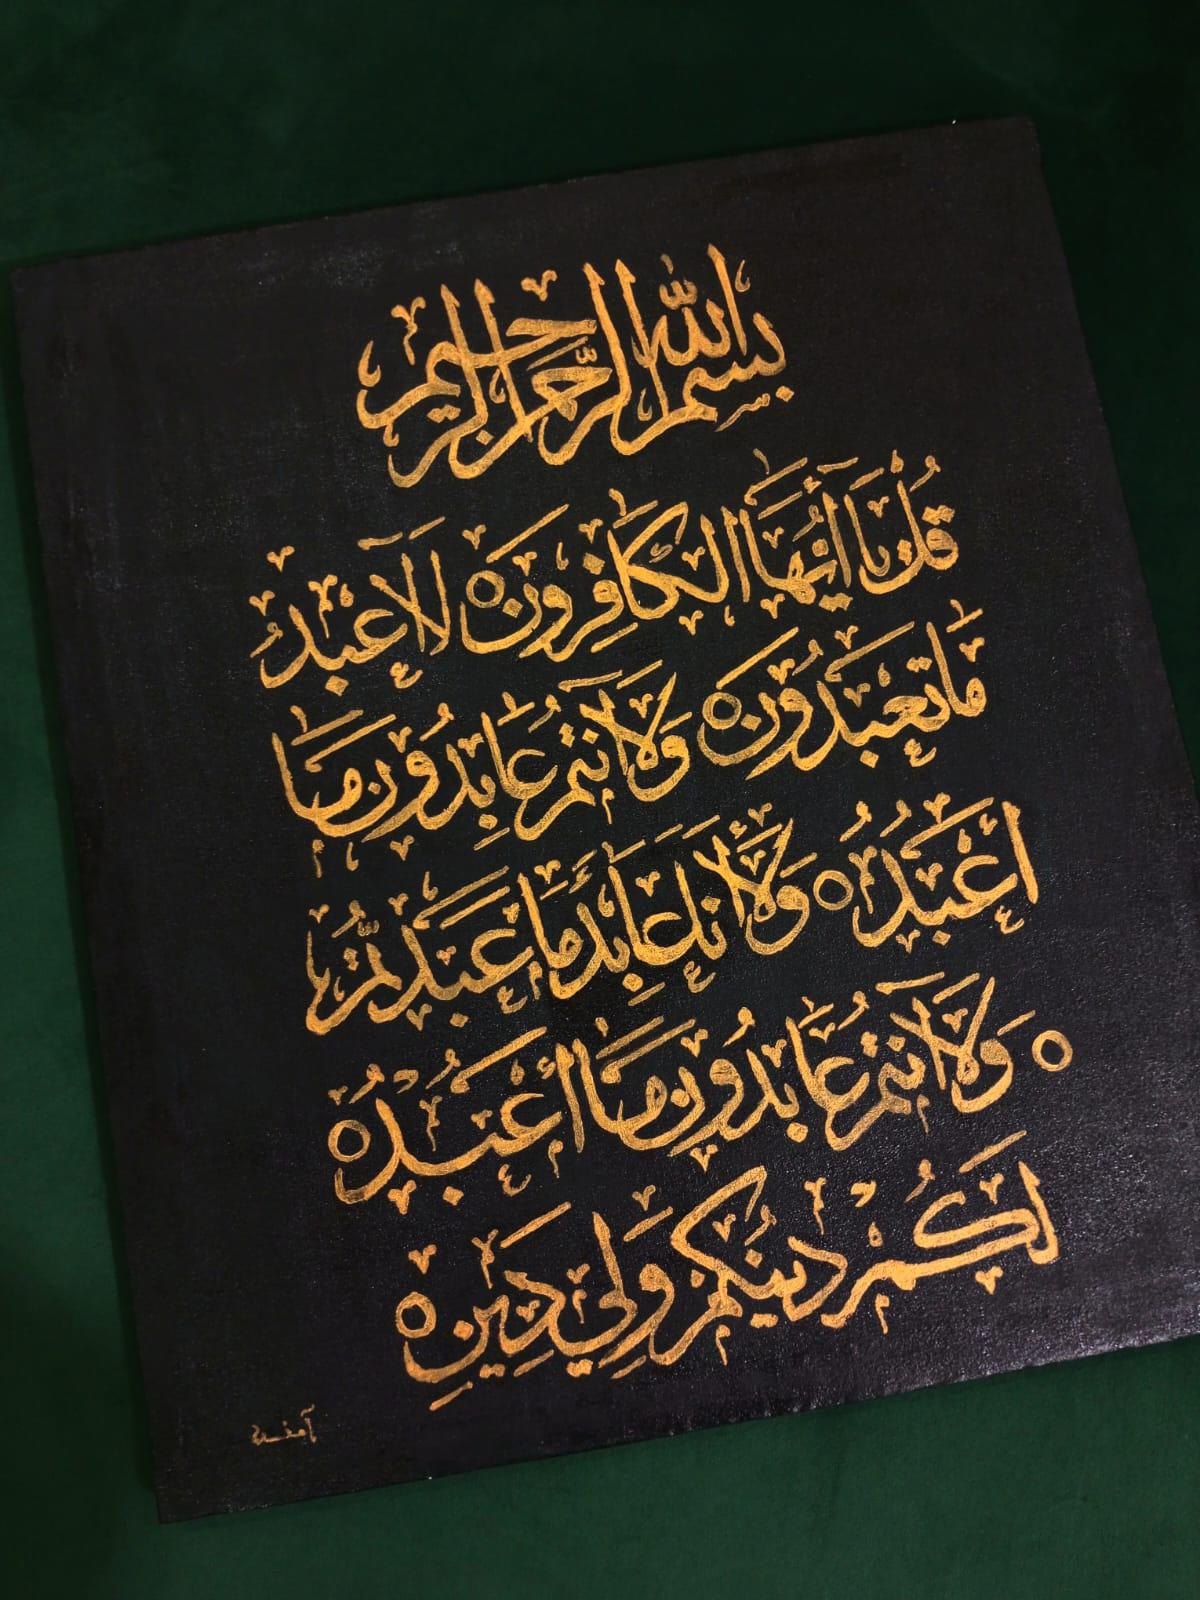 بسم الله الرحمن الرحيم
قُلْ يَا أَيُّهَا الْكَافِرُونَ ۝ لَا أَعْبُدُ
مَا تَعْبُدُونَ ۝ وَلَا أَنْتُمْ عَابِدُونَ مَا
أَعْبُدُ ۝ وَلَا أَنَا عَابِدٌ مَا عَبَدْتُمْ
۝ وَلَا أَنْتُمْ عَابِدُونَ مَا أَعْبُدُ ۝
لَكُمْ دِينُكُمْ وَلِيَ دِينِ ۝
آمنہ